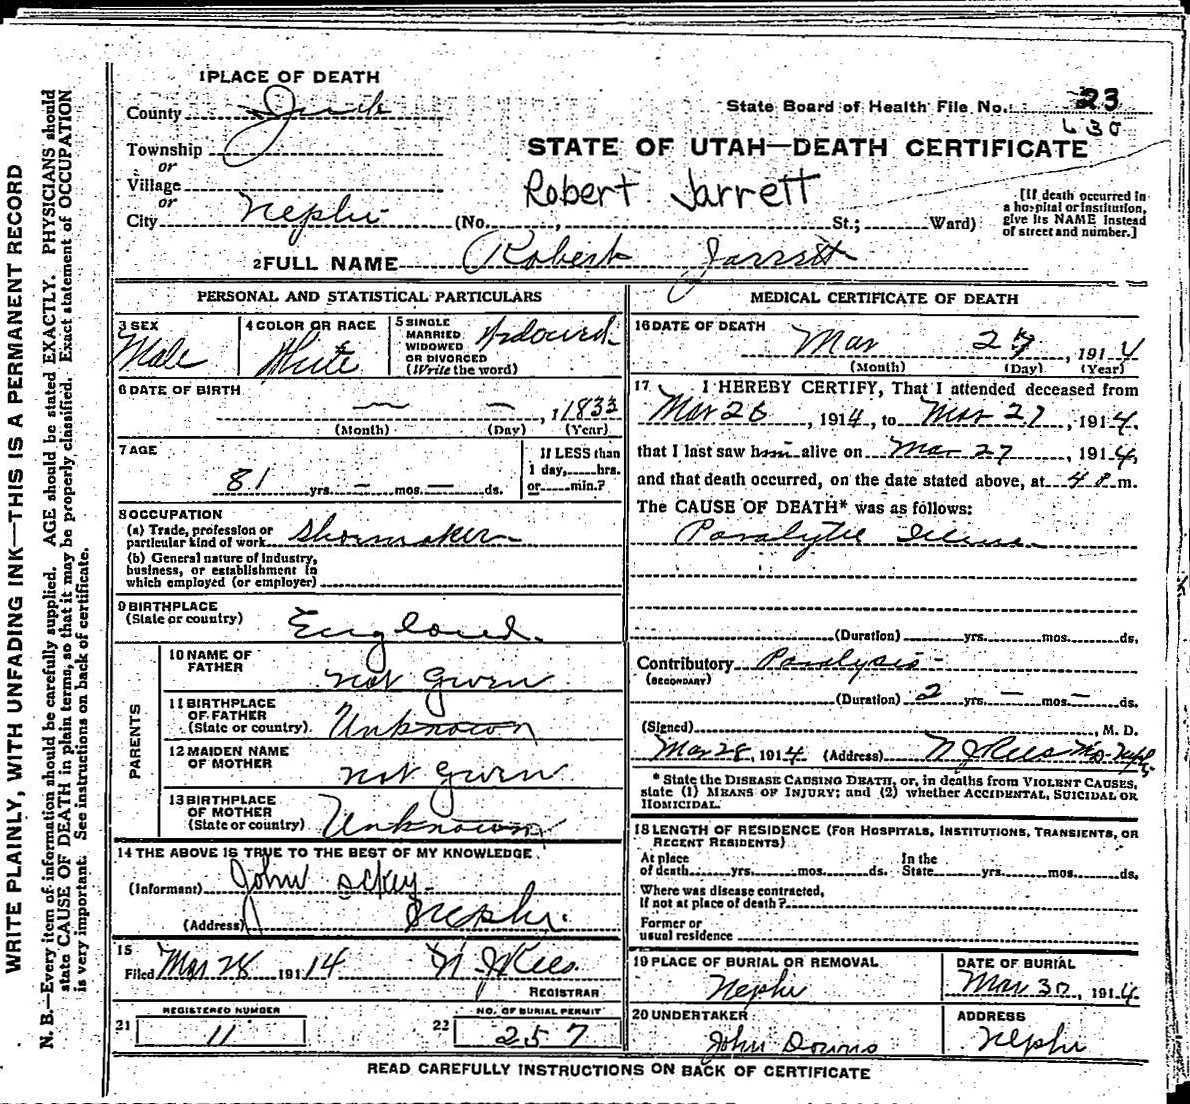 WRITE PLAINLY, WITH UNFADING INK—THIS IS A PERMANENT RECORD
N. B.—Every item of information should be carefully supplied. AGE should be stated EXACTLY. PHYSICIANS should
state CAUSE OF DEATH in plain terms, so that it may be properly classified. Exact statement of OCCUPATION
is very important. See instructions on back of certificate.
1 PLACE OF DEATH
County Juab
State Board of Health File No. 23
630
Township
or
Village
or
City Nephi
STATE OF UTAH—DEATH CERTIFICATE
Robert Jarrett
(No. , St.; Ward)
[If death occurred in
a hospital or institution,
give its NAME instead
of street and number.]
2 FULL NAME Robert Jarrett
PERSONAL AND STATISTICAL PARTICULARS
3 SEX
Male
4 COLOR OR RACE
White
5 SINGLE
MARRIED
WIDOWED
OR DIVORCED
(Write the word)
Widowed
6 DATE OF BIRTH
— — , 1 1833
(Month) (Day) (Year)
7 AGE
81 yrs. — mos. — ds.
If LESS than
1 day, hrs.
or min.?
8 OCCUPATION
(a) Trade, profession or
particular kind of work Shoemaker
(b) General nature of industry,
business, or establishment in
which employed (or employer)
9 BIRTHPLACE
(State or country) England.
PARENTS
10 NAME OF
FATHER not Given
11 BIRTHPLACE
OF FATHER
(State or country) Unknown
12 MAIDEN NAME
OF MOTHER not Given
13 BIRTHPLACE
OF MOTHER
(State or country) Unknown
14 THE ABOVE IS TRUE TO THE BEST OF MY KNOWLEDGE
(Informant) John
(Address) Nephi.
15
Filed Mar 28 191 14 N J Rees
REGISTRAR
REGISTERED NUMBER
21 11
NO. OF BURIAL PERMIT
22 257
MEDICAL CERTIFICATE OF DEATH
16 DATE OF DEATH
Mar 27, 1914
(Month) (Day) (Year)
17 I HEREBY CERTIFY, That I attended deceased from
Mar 26, 1914, to Mar 27, 1914.
that I last saw him alive on Mar 27, 1914,
and that death occurred, on the date stated above, at 4 m.
The CAUSE OF DEATH* was as follows:
Paralytic
(Duration) yrs. mos. ds.
Contributory Paralysis -
(SECONDARY)
(Duration) 2 yrs. — mos. — ds.
(Signed) , M. D.
Mar 28, 1914 (Address) N J Rees MD Nephi
* State the DISEASE CAUSING DEATH, or, in deaths from VIOLENT CAUSES,
state (1) MEANS OF INJURY; and (2) whether ACCIDENTAL, SUICIDAL OR
HOMICIDAL.
18 LENGTH OF RESIDENCE (FOR HOSPITALS, INSTITUTIONS, TRANSIENTS, OR
RECENT RESIDENTS)
At place
of death yrs. mos. ds.
In the
State yrs. mos. ds.
Where was disease contracted,
if not at place of death?
Former or
usual residence
19 PLACE OF BURIAL OR REMOVAL
Nephi
DATE OF BURIAL
Mar 30, 1914.
20 UNDERTAKER
John Downs
ADDRESS
Nephi
READ CAREFULLY INSTRUCTIONS ON BACK OF CERTIFICATE